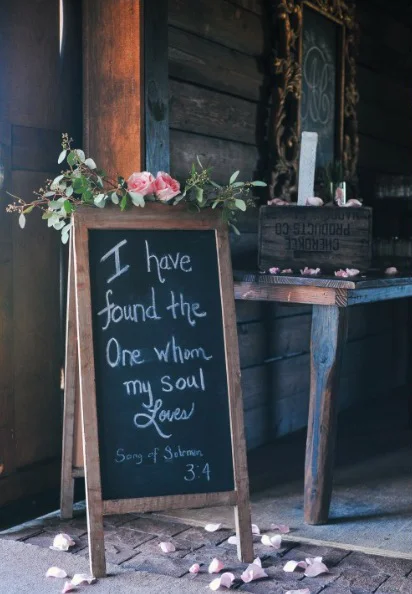 I have
found the
One whom
my soul
Loves
Song of Solomon
3:4
CHEROKEE
PRODUCTS CO